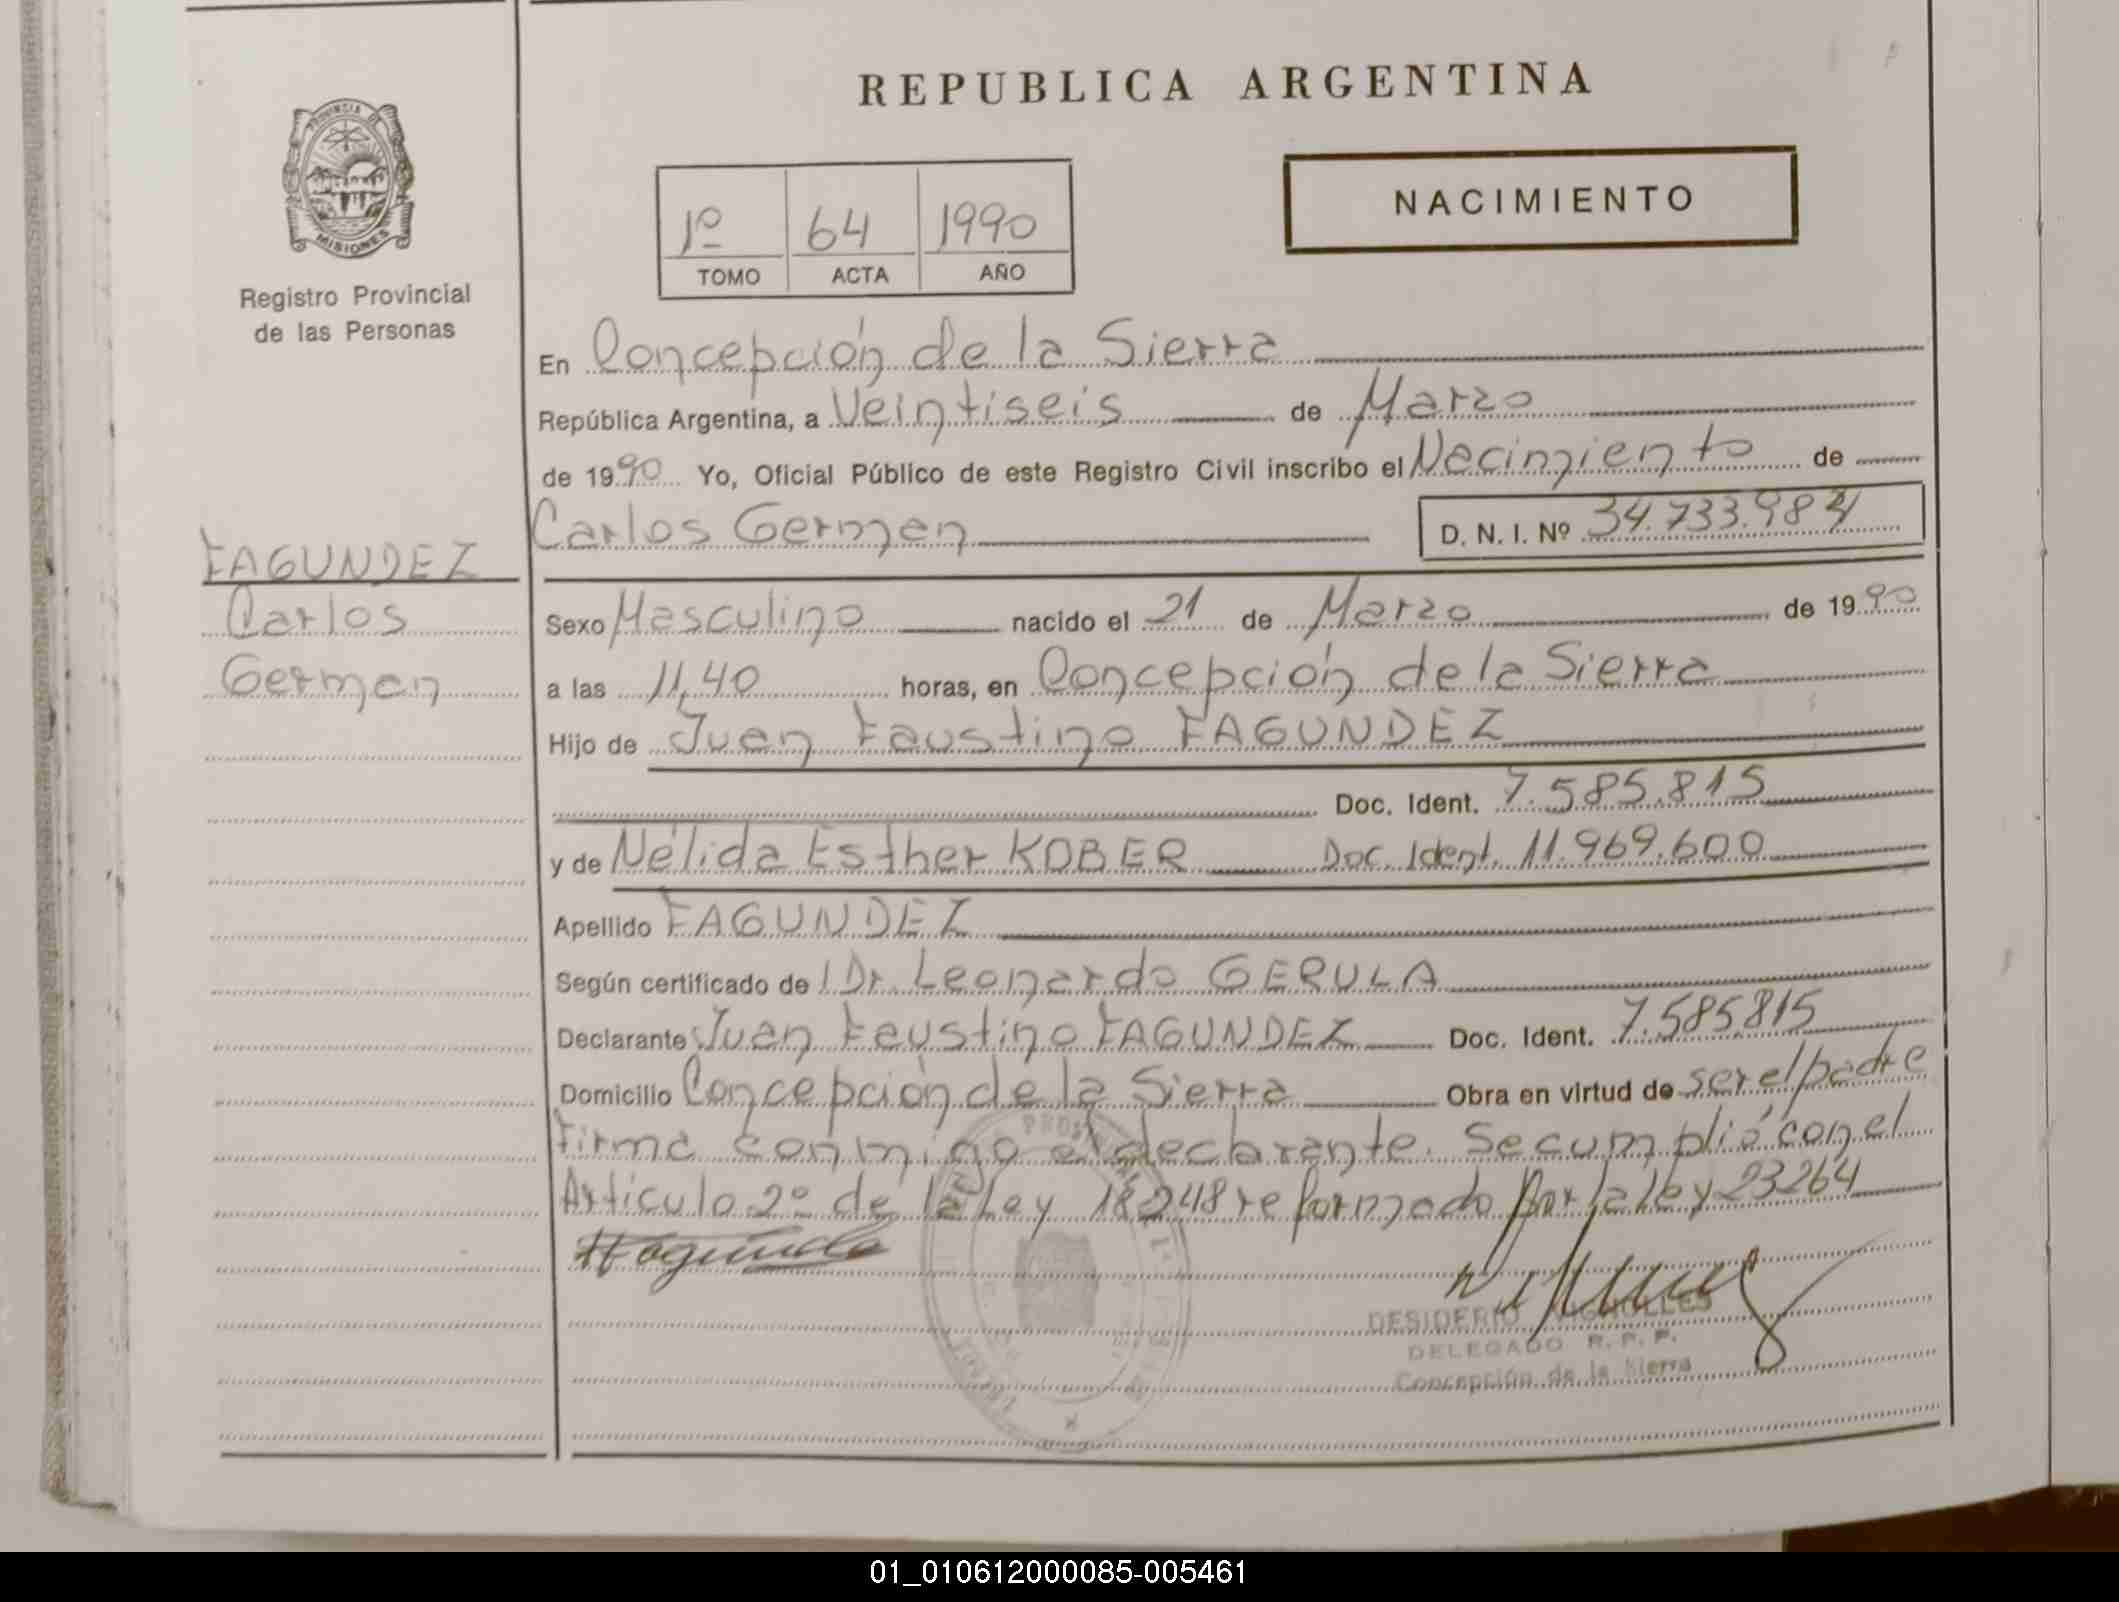 REPUBLICA ARGENTINA
PROVINCIA DE
MISIONES
Registro Provincial
de las Personas
1º 64 1990
TOMO ACTA AÑO
NACIMIENTO
En Concepción de la Sierra
República Argentina, a Veintiseis de Marzo
de 1990 Yo, Oficial Público de este Registro Civil inscribo el Nacimiento de
Carlos German D. N. I. Nº
FAGUNDEZ
Carlos
German
Sexo Masculino nacido el 21 de Marzo de 1990
a las 11,40 horas, en Concepción de la Sierra
Hijo de Juan Faustino FAGUNDEZ
Doc. Ident. 7.585.815
y de Nélida Esther KOBER Doc. Ident. 11.969.600
Apellido FAGUNDEZ
Según certificado de l Dr. Leonardo GERULA
Declarante Juan Faustino FAGUNDEZ Doc. Ident. 7.585.815
Domicilio Concepción de la Sierra Obra en virtud de ser el padre
Firma conmigo el declarante. Se cumplió con el
Artículo 2º de la Ley 18248 reformado por la ley 23264
DESIDERIO
DELEGADO R. P. P.
Concepción de la Sierra
01_010612000085-005461